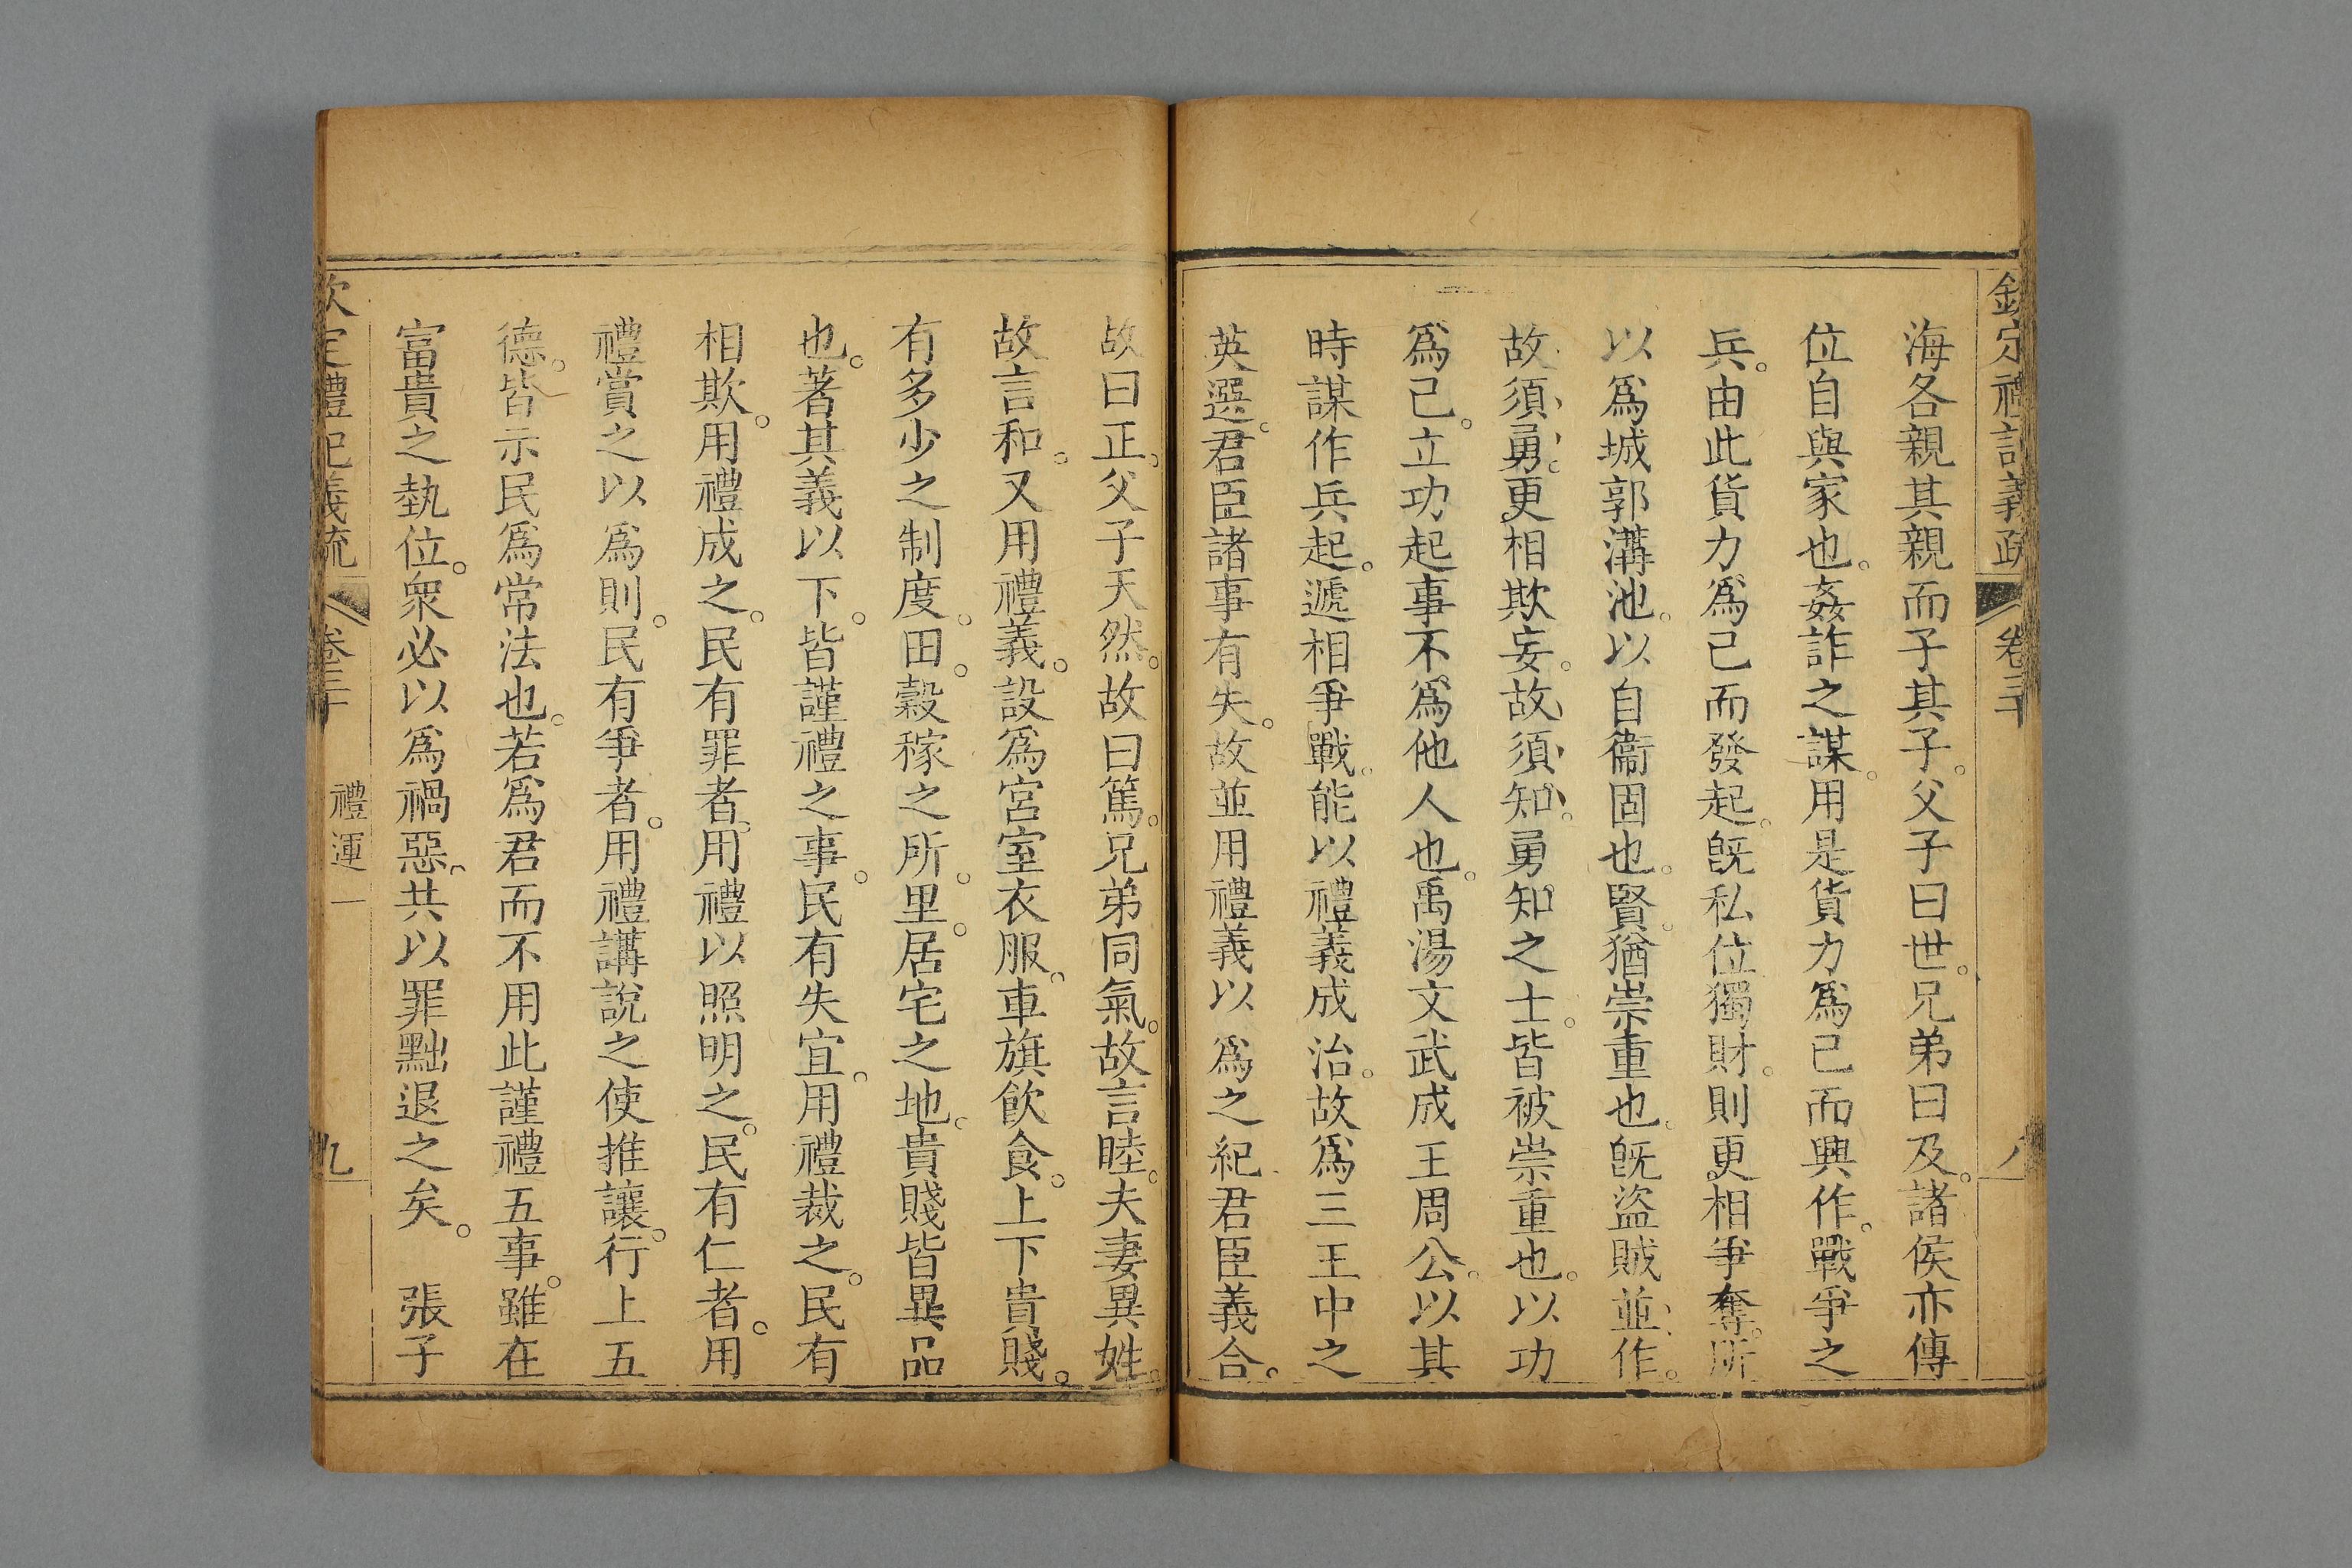 欽定禮記義疏 卷三十
海各親其親而子其子。父子曰世。兄弟曰及。諸侯亦傳
位自與家也。姦詐之謀。用是貨力爲己而興作。戰爭之
兵。由此貨力爲己而發起。旣私位獨財。則更相爭奪。所
以爲城郭溝池。以自衞固也。賢。猶崇重也。旣盜賊並作。
故須勇。更相欺妄。故須知。勇知之士。皆被崇重也。以功
爲己。立功起事不爲他人也。禹湯文武成王周公。以其
時謀作兵起。遞相爭戰。能以禮義成治。故爲三王中之
英選。君臣諸事有失。故並用禮義以爲之紀。君臣義合。
故曰正。父子天然。故曰篤。兄弟同氣。故言睦。夫妻異姓。
故言和。又用禮義。設爲宮室衣服。車旗飮食。上下貴賤。
有多少之制度。田。穀稼之所。里。居宅之地。貴賤皆異品
也。著其義以下。皆謹禮之事。民有失宜。用禮裁之。民有
相欺。用禮成之。民有罪者。用禮以照明之。民有仁者。用
禮賞之以爲則。民有爭者。用禮講說之使推讓。行上五
德。皆示民爲常法也。若爲君而不用此謹禮五事。雖在
富貴之埶位。衆必以爲禍惡。共以罪黜退之矣。 張子
欽定禮記義疏 卷三十 禮運一 九